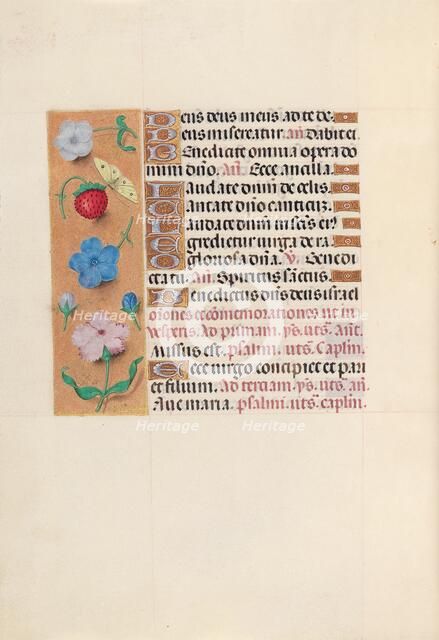 Deus deus meus ad te de
Deus misereatur. añ Dabit ei.
Benedicite omnia opera do
mini dño. Añ. Ecce ancilla.
Laudate dñm de celis.
Cantate dño canticũ.
Laudate dñm in scīs eiꝰ
Egredietur uirga de ra.
O gloriosa dña. V. Bened
icta tu. Añ. Spiritus sāctus.
Benedictus dñs deus israel
oōnes et cōmemorationes ut in
vesperis. Ad primam. ps. uts̄. Añt.
Missus est. psalmi. uts̄. Caplm̄.
Ecce uirgo concipiet et pari
et filium. Ad terciam. ps. uts̄. añ.
Aue maria. psalmi. uts̄. caplm̄.
Heritage
Heritage
Heritage
Heritage
Heritage
Heritage